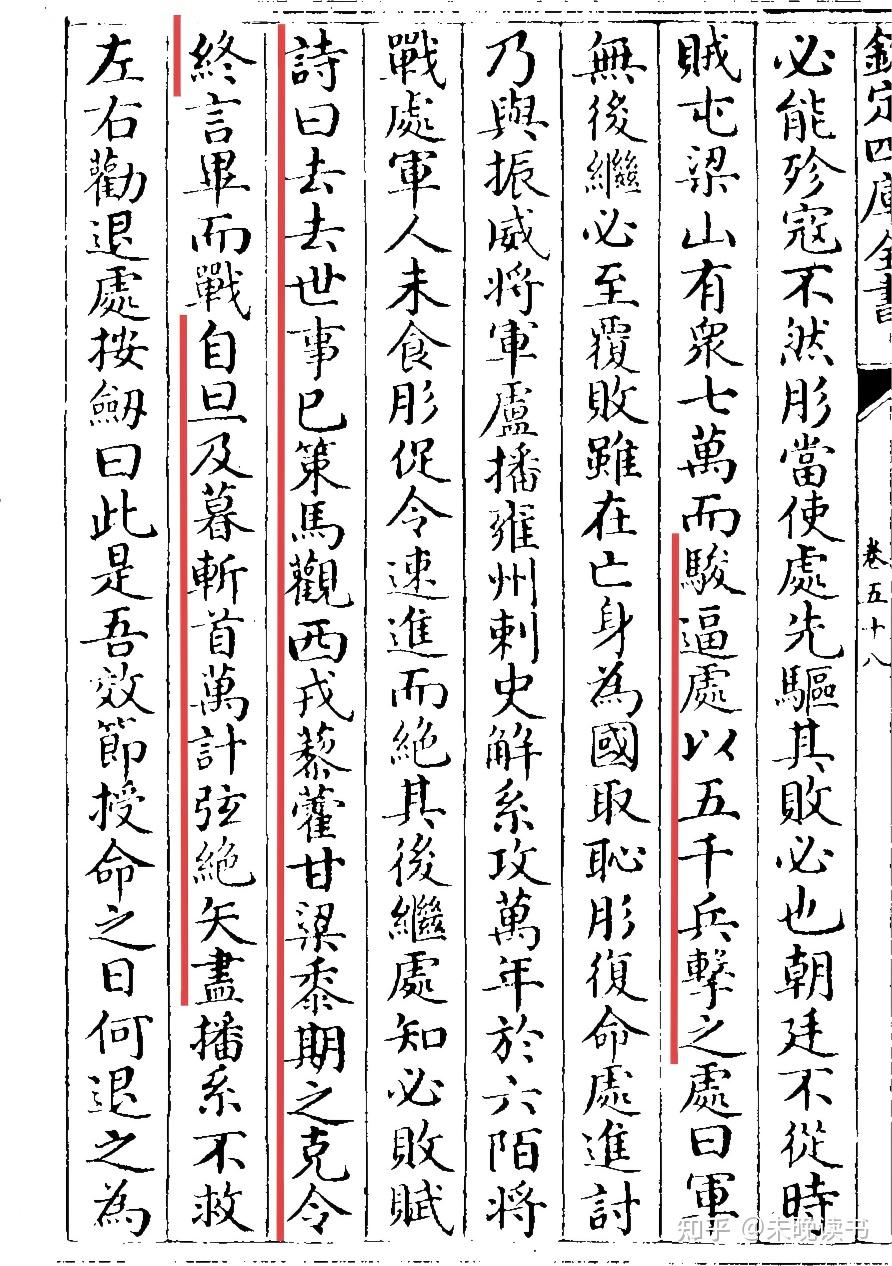 欽定四庫全書
卷五十八
必能殄寇不然肜當使處先驅其敗必也朝廷不從時
賊屯梁山有衆七萬而駿逼處以五千兵擊之處曰軍
無後繼必至覆敗雖在亡身為國取恥肜復命處進討
乃與振威將軍盧播雍州刺史解系攻萬年於六陌將
戰處軍人未食肜促令速進而絶其後繼處知必敗賦
詩曰去去世事已策馬觀西戎藜藿甘梁黍期之克令
終言畢而戰自旦及暮斬首萬計弦絶矢盡播系不救
左右勸退處按劒曰此是吾效節授命之日何退之為
知乎 @未晚读书